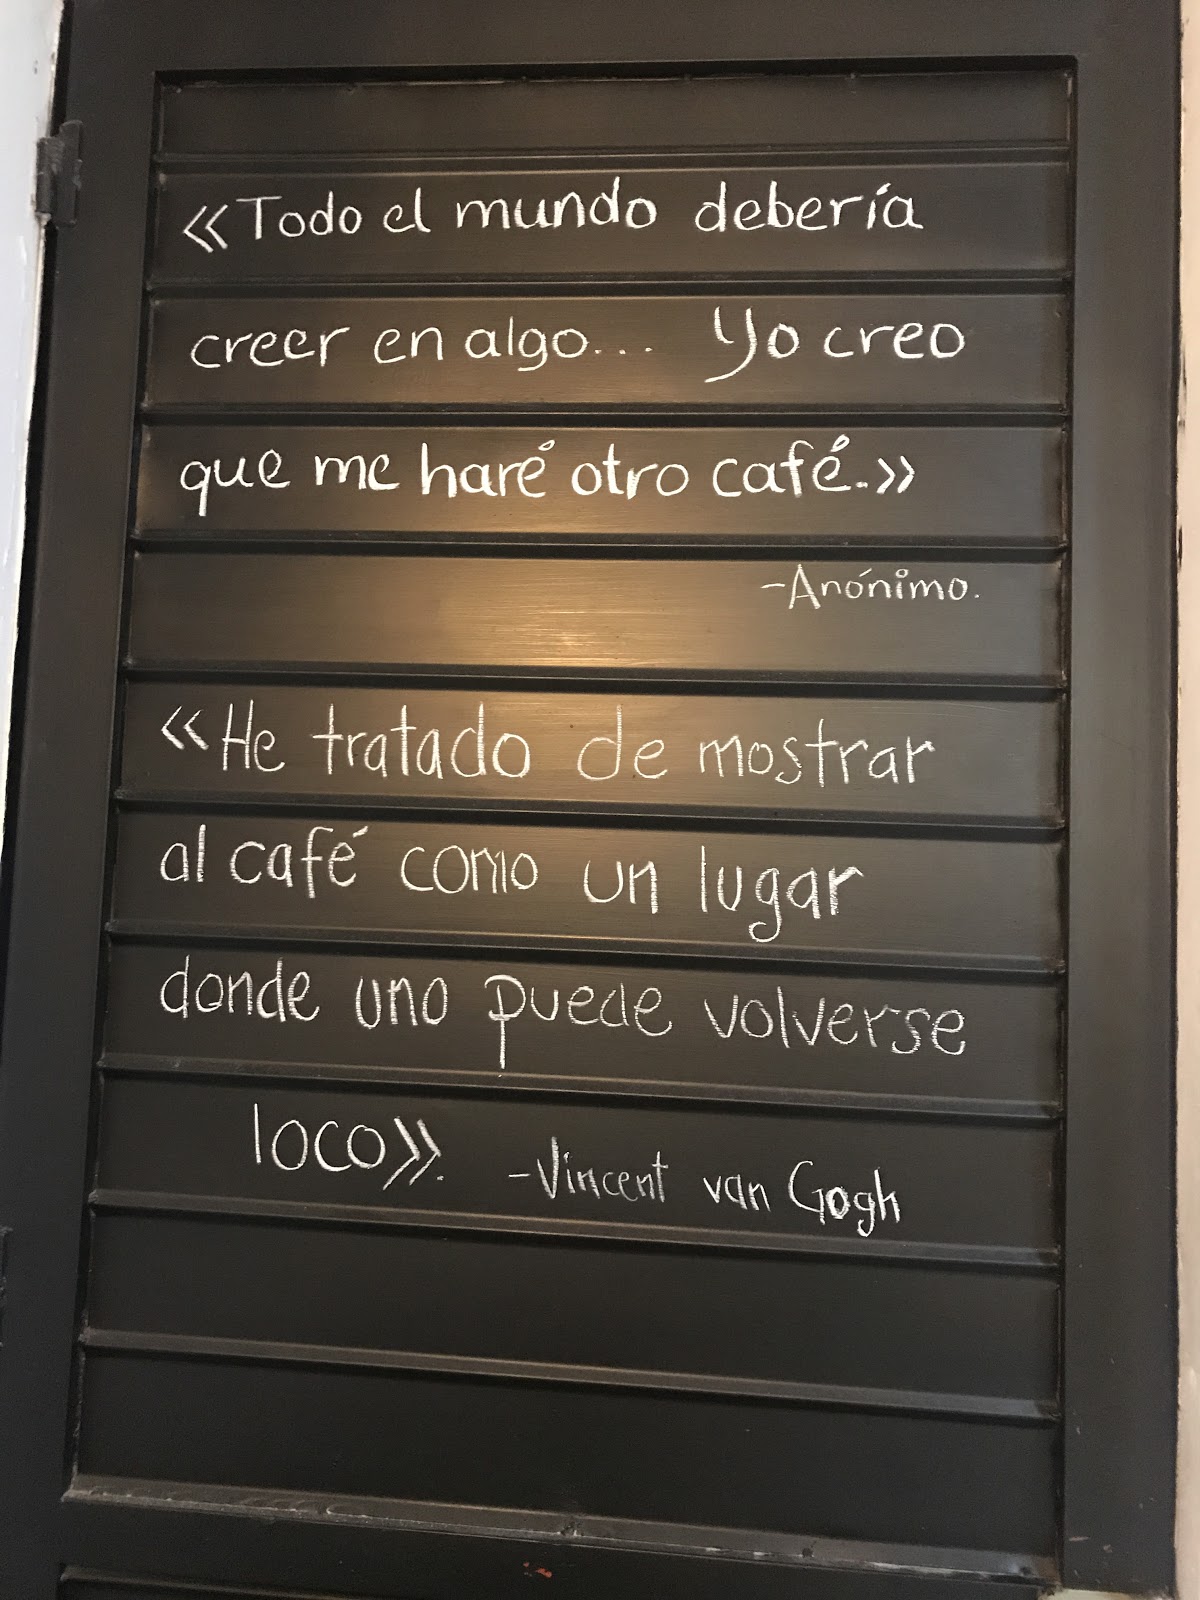 «Todo el mundo debería
creer en algo... Yo creo
que me haré otro café.»
-Anónimo.
«He tratado de mostrar
al café como un lugar
donde uno puede volverse
loco».
-Vincent van Gogh